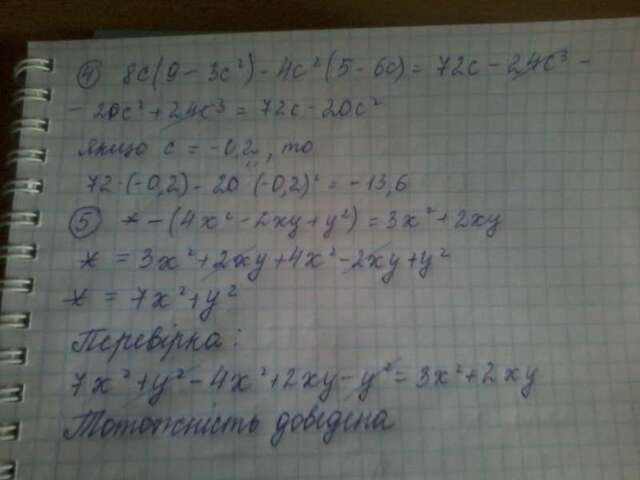 ④ 8c(9 - 3c²) - 4c²(5 - 6c) = 72c - 24c³ -
- 20c² + 24c³ = 72c - 20c²
якщо c = -0,2, то
72·(-0,2) - 20·(-0,2)² = -13,6
⑤ * - (4x² - 2xy + y²) = 3x² + 2xy
* = 3x² + 2xy + 4x² - 2xy + y²
* = 7x² + y²
Перевірка:
7x² + y² - 4x² + 2xy - y² = 3x² + 2xy
Тотожність доведена